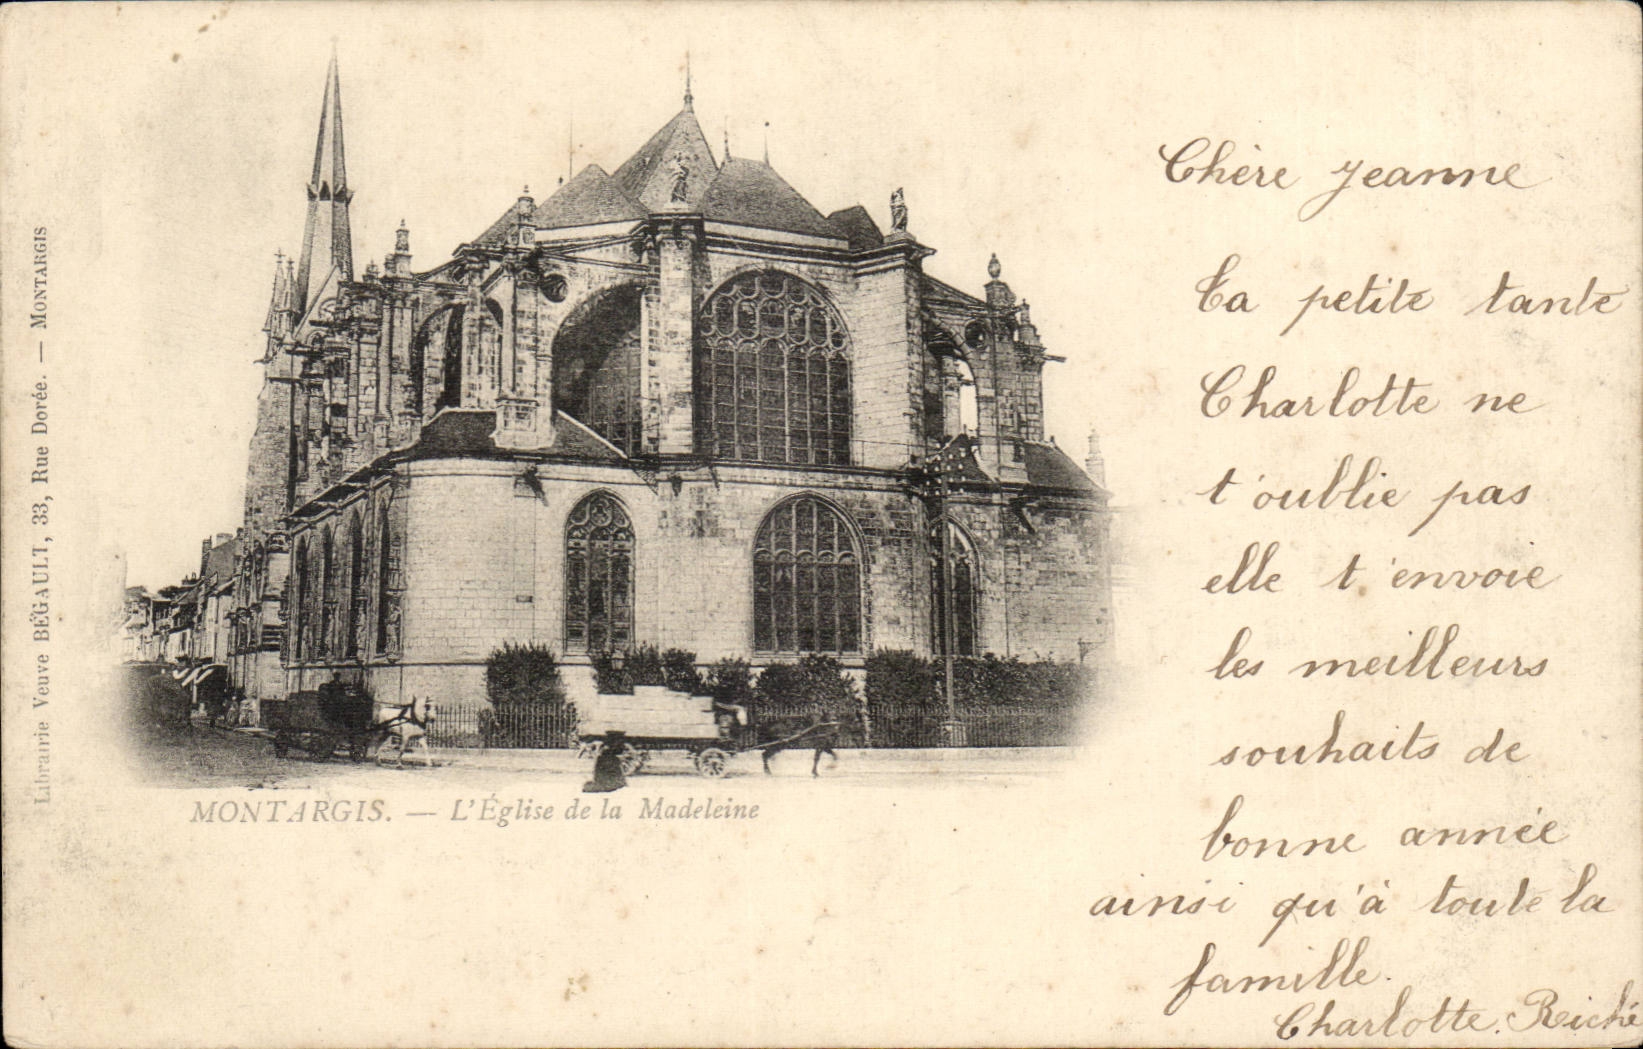 Librairie Veuve BÉGAULT, 33, Rue Dorée. — MONTARGIS
MONTARGIS. — L'Église de la Madeleine
Chère Jeanne
Ta petite tante
Charlotte ne
t'oublie pas
elle t'envoie
les meilleurs
souhaits de
bonne année
ainsi qu'à toute la
famille.
Charlotte. Riché